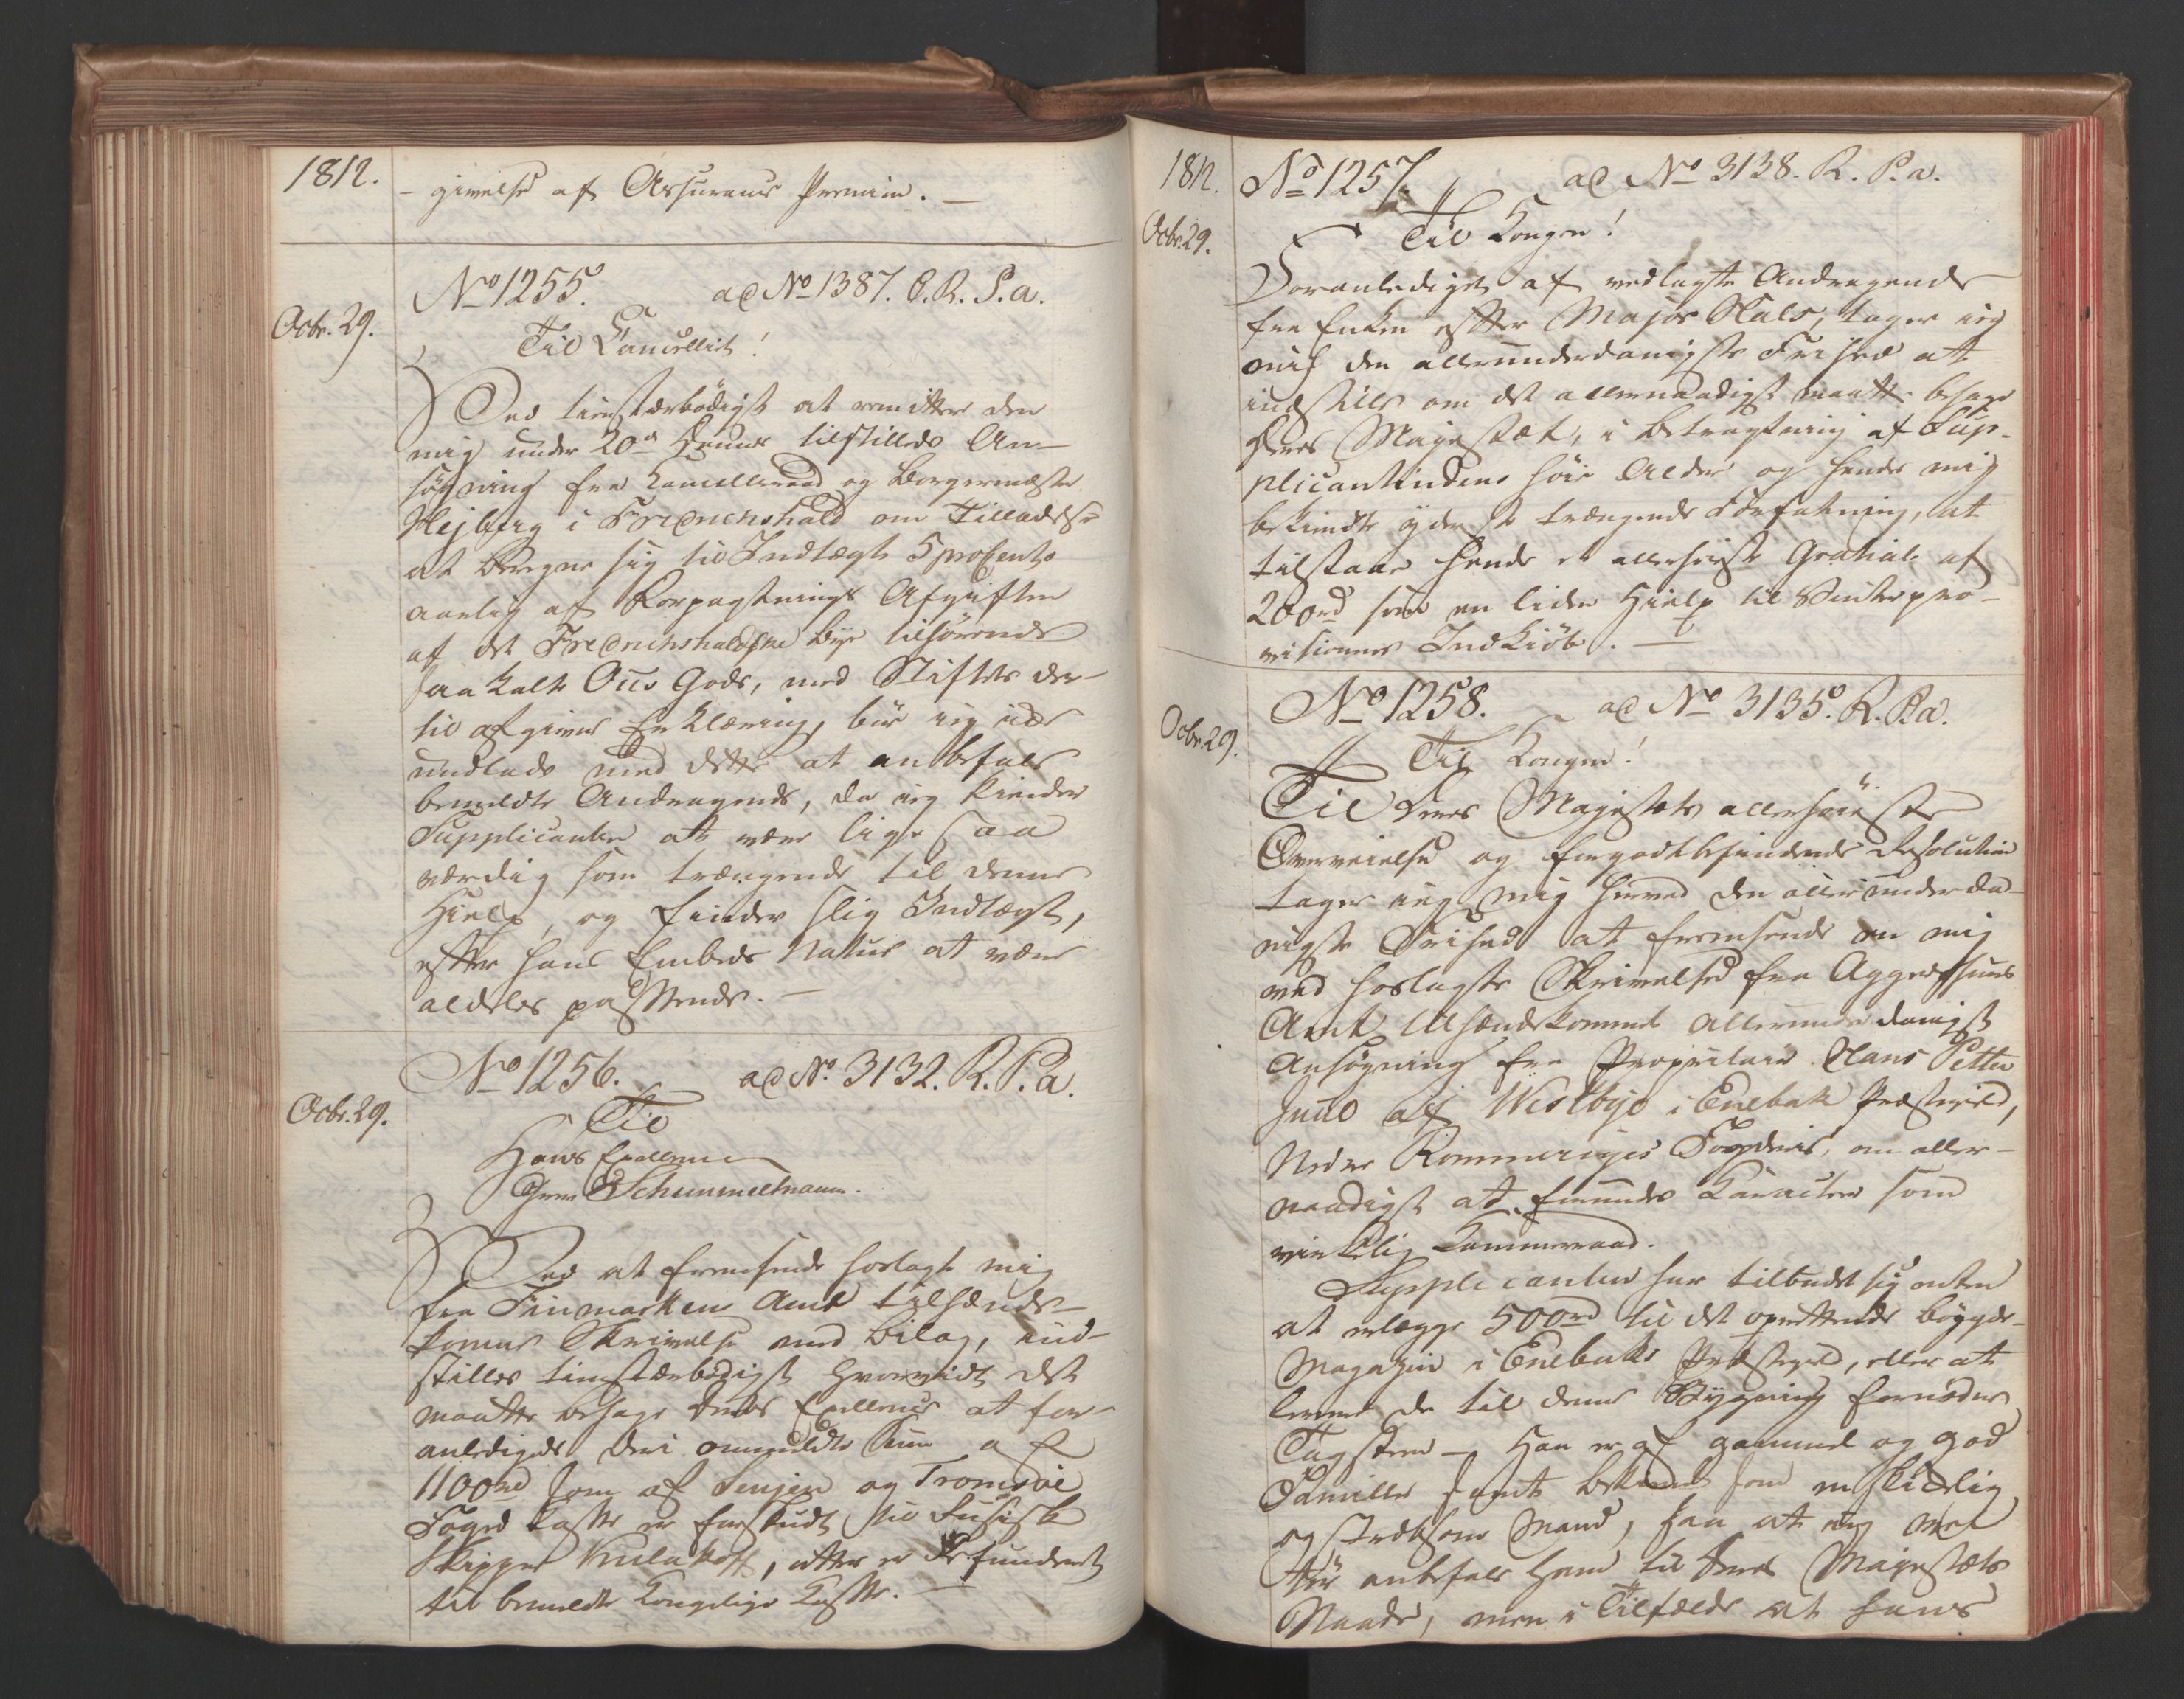 1812.
- givelse af Assurance Premie. —
No 1255. ad No 1387. C. R. P. a.
Octr. 29.
Til Cancelliet!
Ved tienstærbødigst at remittere den
mig under 20de Denne tilstillede An-
søgning fra Cancelliraad og Borgermester
Hejberg i Fredrichshald om Tilladelse
at beregne sig til Indtægt 5 proCento
aarlig af Forpagtnings Afgiften
af det Fredrichshaldske Bye tilhørende
saa kaldte Ous Gods, med Stiftets der-
til afgivne Erklæring, bør jeg ikke
undlade med dette at anbefale
bemeldte Andragende, da jeg kiender
Supplicanten at være lige saa
værdig som trængende til denne
Hielp, og finder slig Indtægt,
efter hans Embeds Natur at være
aldeles passende. —
No 1256. ad No. 3132. R. P. a.
Octr. 29.
Til
Hans Excellence
Herr Schimmelmann.
Ved at fremsende hoslagt mig
fra Finmarkens Amt tilhænde-
komne Skrivelse med Bilag, ind-
stilles tienstærbødigst hvorvidt det
maatte behage Deres Excellence at for-
anledige den i ommeldte Sum af
1100rd som af Senjen og Tromsøe
Foged Casse er forskudt til Russisk
Skipper Kulakoff, atter er Refunderet
til bemeldte Kongelige Casse. —
1812.
No 1257. ad No 3138. R. P. a.
Octr. 29.
Til Kongen!
Foranlediget af vedlagte Andragende
fra Enken efter Major Hals, tager jeg
mig den allerunderdanigste Frihed at
indstille om det allernaadigst maatte behage
Deres Majestæt, i Betragtning af Sup-
plicantindens høie Alder og hendes mig
bekiendte yderst trængende Forfatning, at
tilstaae hende et allerhøiste Gratiale af
200rd som en liden Hielp til Vinterpro-
visionens Indkiøb. —
No 1258. ad No 3135. R. P. a.
Octr. 29.
Til Kongen!
Til Deres Majestæts allerhøieste
Overveielse og forgodtbefindende Resolution
tager jeg mig herved den allerunderda-
nigste Frihed at fremsende en mig
med hoslagte Skrivelse fra Aggershuus
Amt tilhændekommet allerunderdanigst
Ansøgning fra Proprietair Hans Petter
Juul af Westbye i Enebak Præstegield,
Nedre Rommeriges Fogderie, om aller-
naadigst at forundes Caracteer som
virkelig Kammerraad.
Supplicanten har tilbudt sig enten
at erlægge 500rd til det oprettende Bygde-
Magazin i Enebaks Præstegield, eller at
levere de til denne Bygning fornødne
Tagsteen — Han er af gammel og god
Familie samt bekiendt som en skikkelig
og stræbsom Mand, saa at jeg vel
tør anbefale ham til Deres Majestæts
Naade, men i Tilfælde at hans